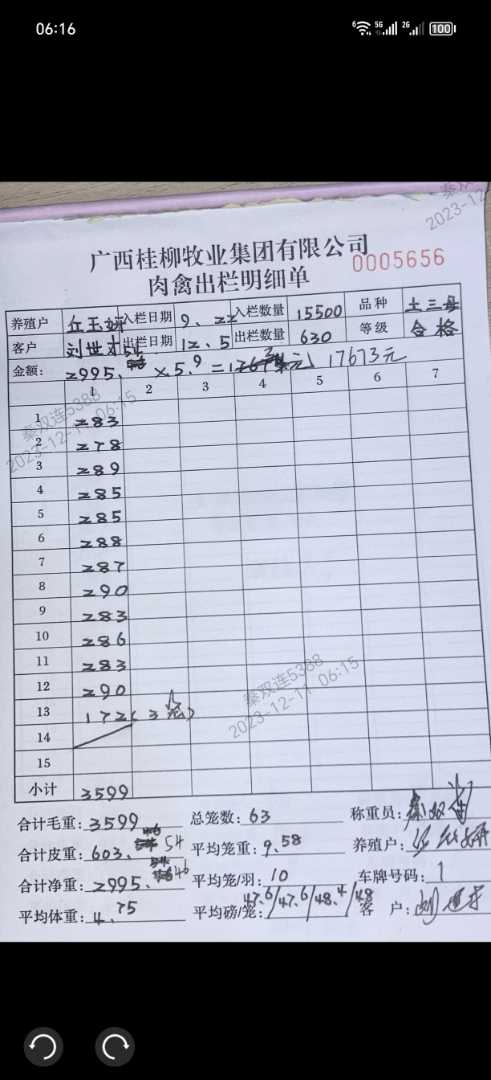 06:16
6 5G 2G 100
秦双
2023-12
广西桂柳牧业集团有限公司
肉禽出栏明细单
0005656
养殖户 丘玉妍 入栏日期 9、22 入栏数量 15500 品种 土三母
客户 刘世才 出栏日期 12、5 出栏数量 630 等级 合格
金额: 2995.54 ×5.9= 17673元
1 2 3 4 5 6 7
1 283
2 278
3 289
4 285
5 285
6 288
7 287
8 290
9 283
10 286
11 283
12 290
13 172(3笼)
14
15
小计 3599
秦双连5388
2023-12-11 06:15
秦双连5388
2023-12-11 06:15
合计毛重: 3599 总笼数: 63 称重员:
合计皮重: 603.54 平均笼重: 9.58 养殖户:
合计净重: 2995.46 平均笼/羽: 10 车牌号码: 1
平均体重: 4.75 平均磅/笼: 47.6/47.6/48.4/48 客 户: